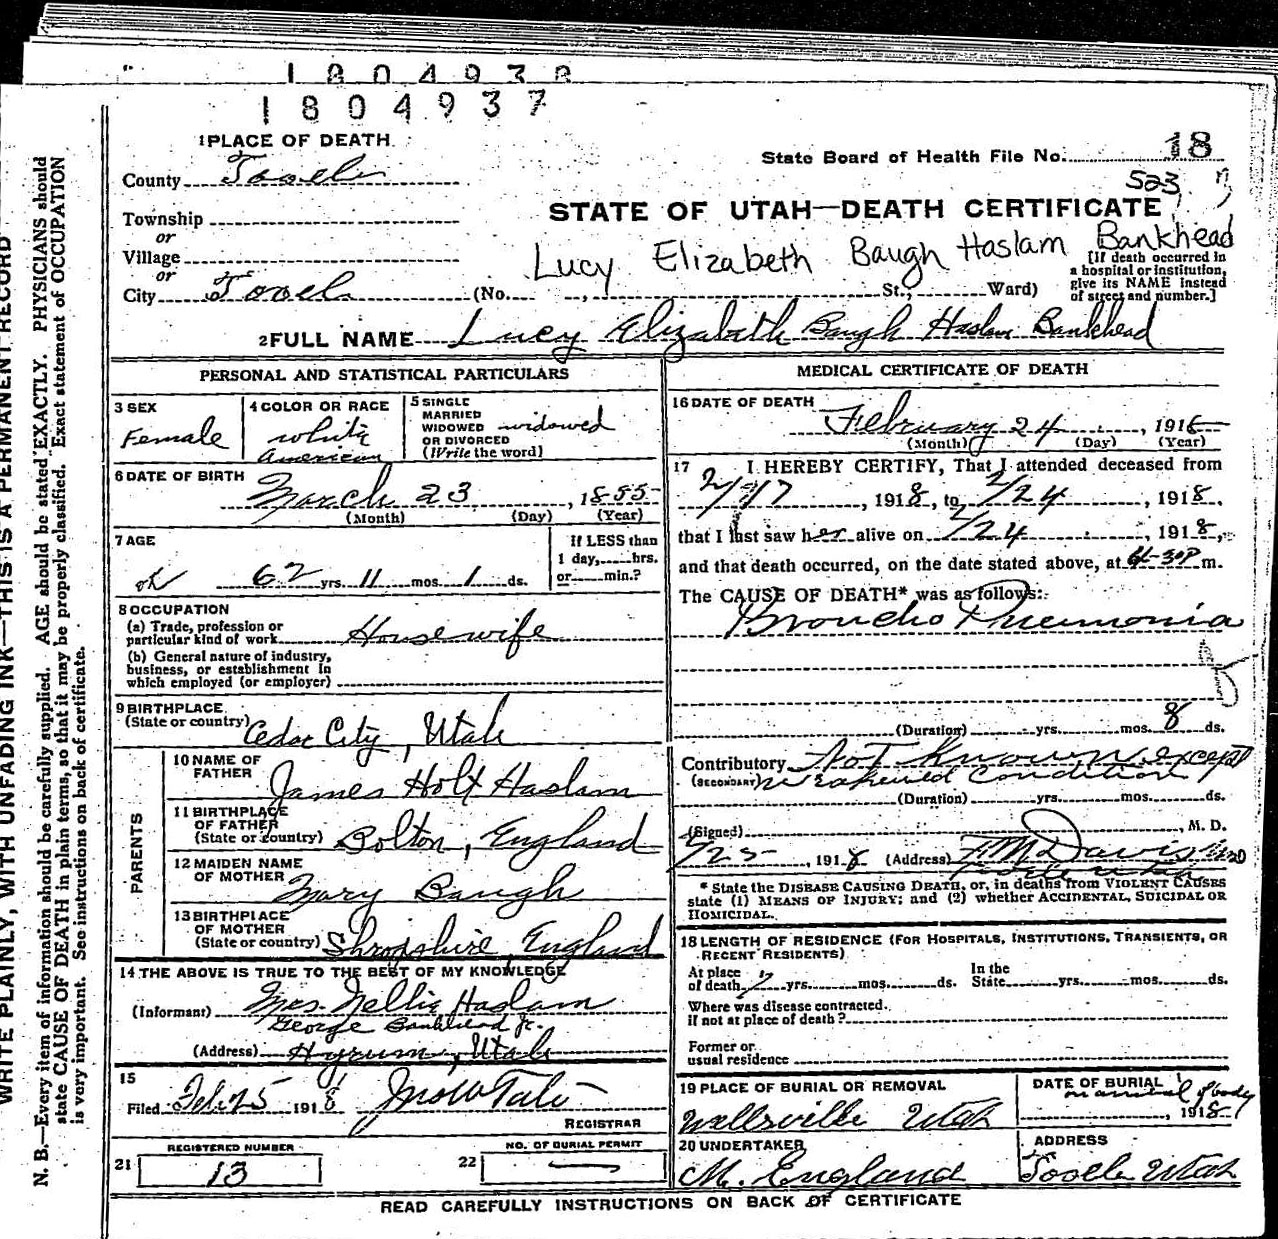 1804938
1804937
1 PLACE OF DEATH
State Board of Health File No. 18
County Tooele
523
Township
STATE OF UTAH—DEATH CERTIFICATE
or
Village
Lucy Elizabeth Baugh Haslam Bankhead
or
City Tooele (No. St., Ward)
[If death occurred in
a hospital or institution,
give its NAME instead
of street and number.]
2 FULL NAME Lucy Elizabeth Baugh Haslam Bankhead
PERSONAL AND STATISTICAL PARTICULARS
3 SEX
Female
4 COLOR OR RACE
white
American
5 SINGLE
MARRIED
WIDOWED widowed
OR DIVORCED
(Write the word)
6 DATE OF BIRTH
March 23, 1855
(Month) (Day) (Year)
7 AGE
62 yrs. 11 mos. 1 ds.
If LESS than
1 day, hrs.
or min.?
8 OCCUPATION
(a) Trade, profession or
particular kind of work Housewife
(b) General nature of industry,
business, or establishment in
which employed (or employer)
9 BIRTHPLACE
(State or country) Cedar City, Utah
PARENTS
10 NAME OF
FATHER
James Holt Haslam
11 BIRTHPLACE
OF FATHER
(State or country) Bolton, England
12 MAIDEN NAME
OF MOTHER
Mary Baugh
13 BIRTHPLACE
OF MOTHER
(State or country) Shropshire, England
14 THE ABOVE IS TRUE TO THE BEST OF MY KNOWLEDGE
(Informant) Mrs. Nellie Haslam
George Bankhead Jr.
(Address) Hyrum, Utah
15
Filed Feb 25 1918
REGISTRAR
REGISTERED NUMBER
21 13
NO. OF BURIAL PERMIT
22
MEDICAL CERTIFICATE OF DEATH
16 DATE OF DEATH
February 24, 191
(Month) (Day) (Year)
17 I HEREBY CERTIFY, That I attended deceased from
2/17, 1918, to 2/24, 1918,
that I last saw her alive on 2/24, 1918,
and that death occurred, on the date stated above, at 30P m.
The CAUSE OF DEATH* was as follows:
Broncho Pneumonia
(Duration) yrs. mos. 8 ds.
Contributory Not Known except
(SECONDARY) weakened condition
(Duration) yrs. mos. ds.
(Signed) , M. D.
2/25, 1918 (Address) T M Davis MD
Tooele Utah
* State the DISEASE CAUSING DEATH, or, in deaths from VIOLENT CAUSES
state (1) MEANS OF INJURY; and (2) whether ACCIDENTAL, SUICIDAL OR
HOMICIDAL.
18 LENGTH OF RESIDENCE (FOR HOSPITALS, INSTITUTIONS, TRANSIENTS, OR
RECENT RESIDENTS)
At place
of death yrs. mos. ds.
In the
State yrs. mos. ds.
Where was disease contracted.
if not at place of death?
Former or
usual residence
19 PLACE OF BURIAL OR REMOVAL
Wellsville Utah
DATE OF BURIAL
on arrival of body
, 1918
20 UNDERTAKER
M. England
ADDRESS
Tooele Utah
READ CAREFULLY INSTRUCTIONS ON BACK OF CERTIFICATE
WRITE PLAINLY, WITH UNFADING INK—THIS IS A PERMANENT RECORD
N. B.—Every item of information should be carefully supplied. AGE should be stated EXACTLY. PHYSICIANS should
state CAUSE OF DEATH in plain terms, so that it may be properly classified. Exact statement of OCCUPATION
is very important. See instructions on back of certificate.